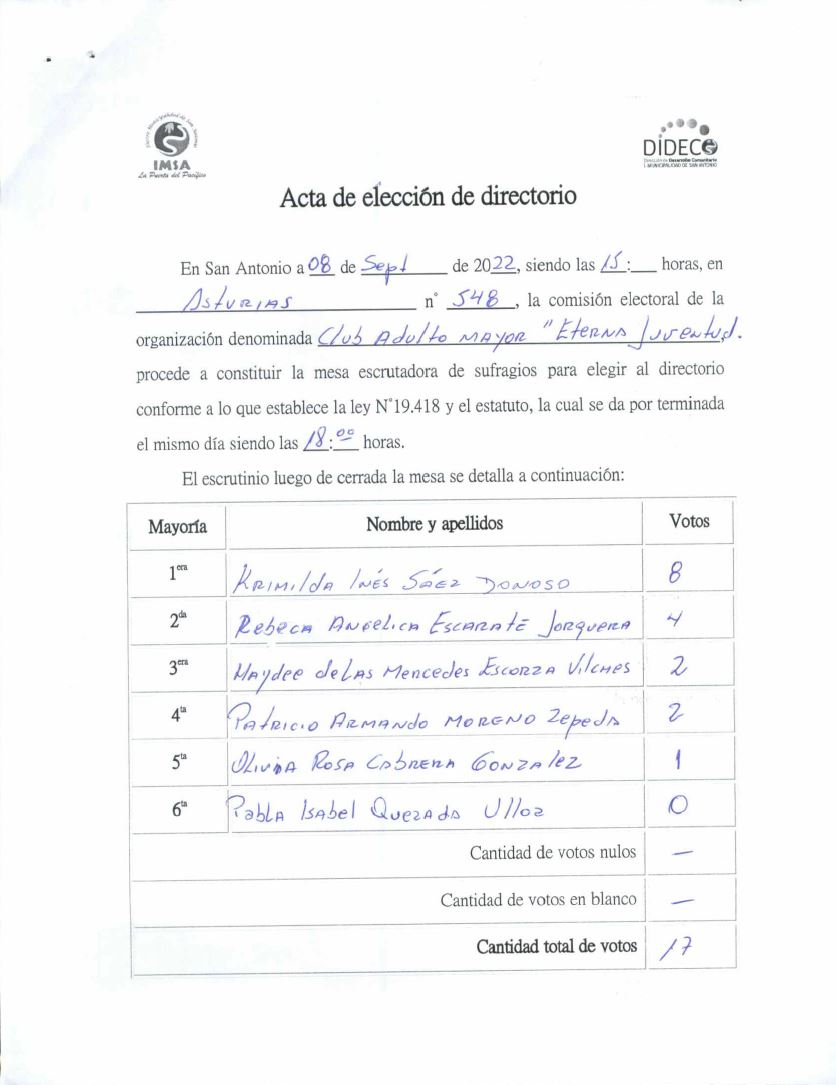 IMSA
La Puerta del Pacífico
DIDECO
Dirección de Desarrollo Comunitario
I. MUNICIPALIDAD DE SAN ANTONIO
Acta de elección de directorio
En San Antonio a 08 de Sept de 2022, siendo las 15:__ horas, en
Asturias n° 548, la comisión electoral de la
organización denominada Club Adulto Mayor "Eterna Juventud.
procede a constituir la mesa escrutadora de sufragios para elegir al directorio
conforme a lo que establece la ley N°19.418 y el estatuto, la cual se da por terminada
el mismo día siendo las 18:00 horas.
El escrutinio luego de cerrada la mesa se detalla a continuación:
Mayoría Nombre y apellidos Votos
1era Krimilda Inés Sáez Donoso 8
2da Rebeca Angelica Escarate Jorquera 4
3era Haydee de Las Mercedes Escorza Vilches 2
4ta Patricio Armando Moreno Zepeda 2
5ta Olivia Rosa Cabrera Gonzalez 1
6ta Pabla Isabel Quezada Ulloa 0
Cantidad de votos nulos —
Cantidad de votos en blanco —
Cantidad total de votos 17